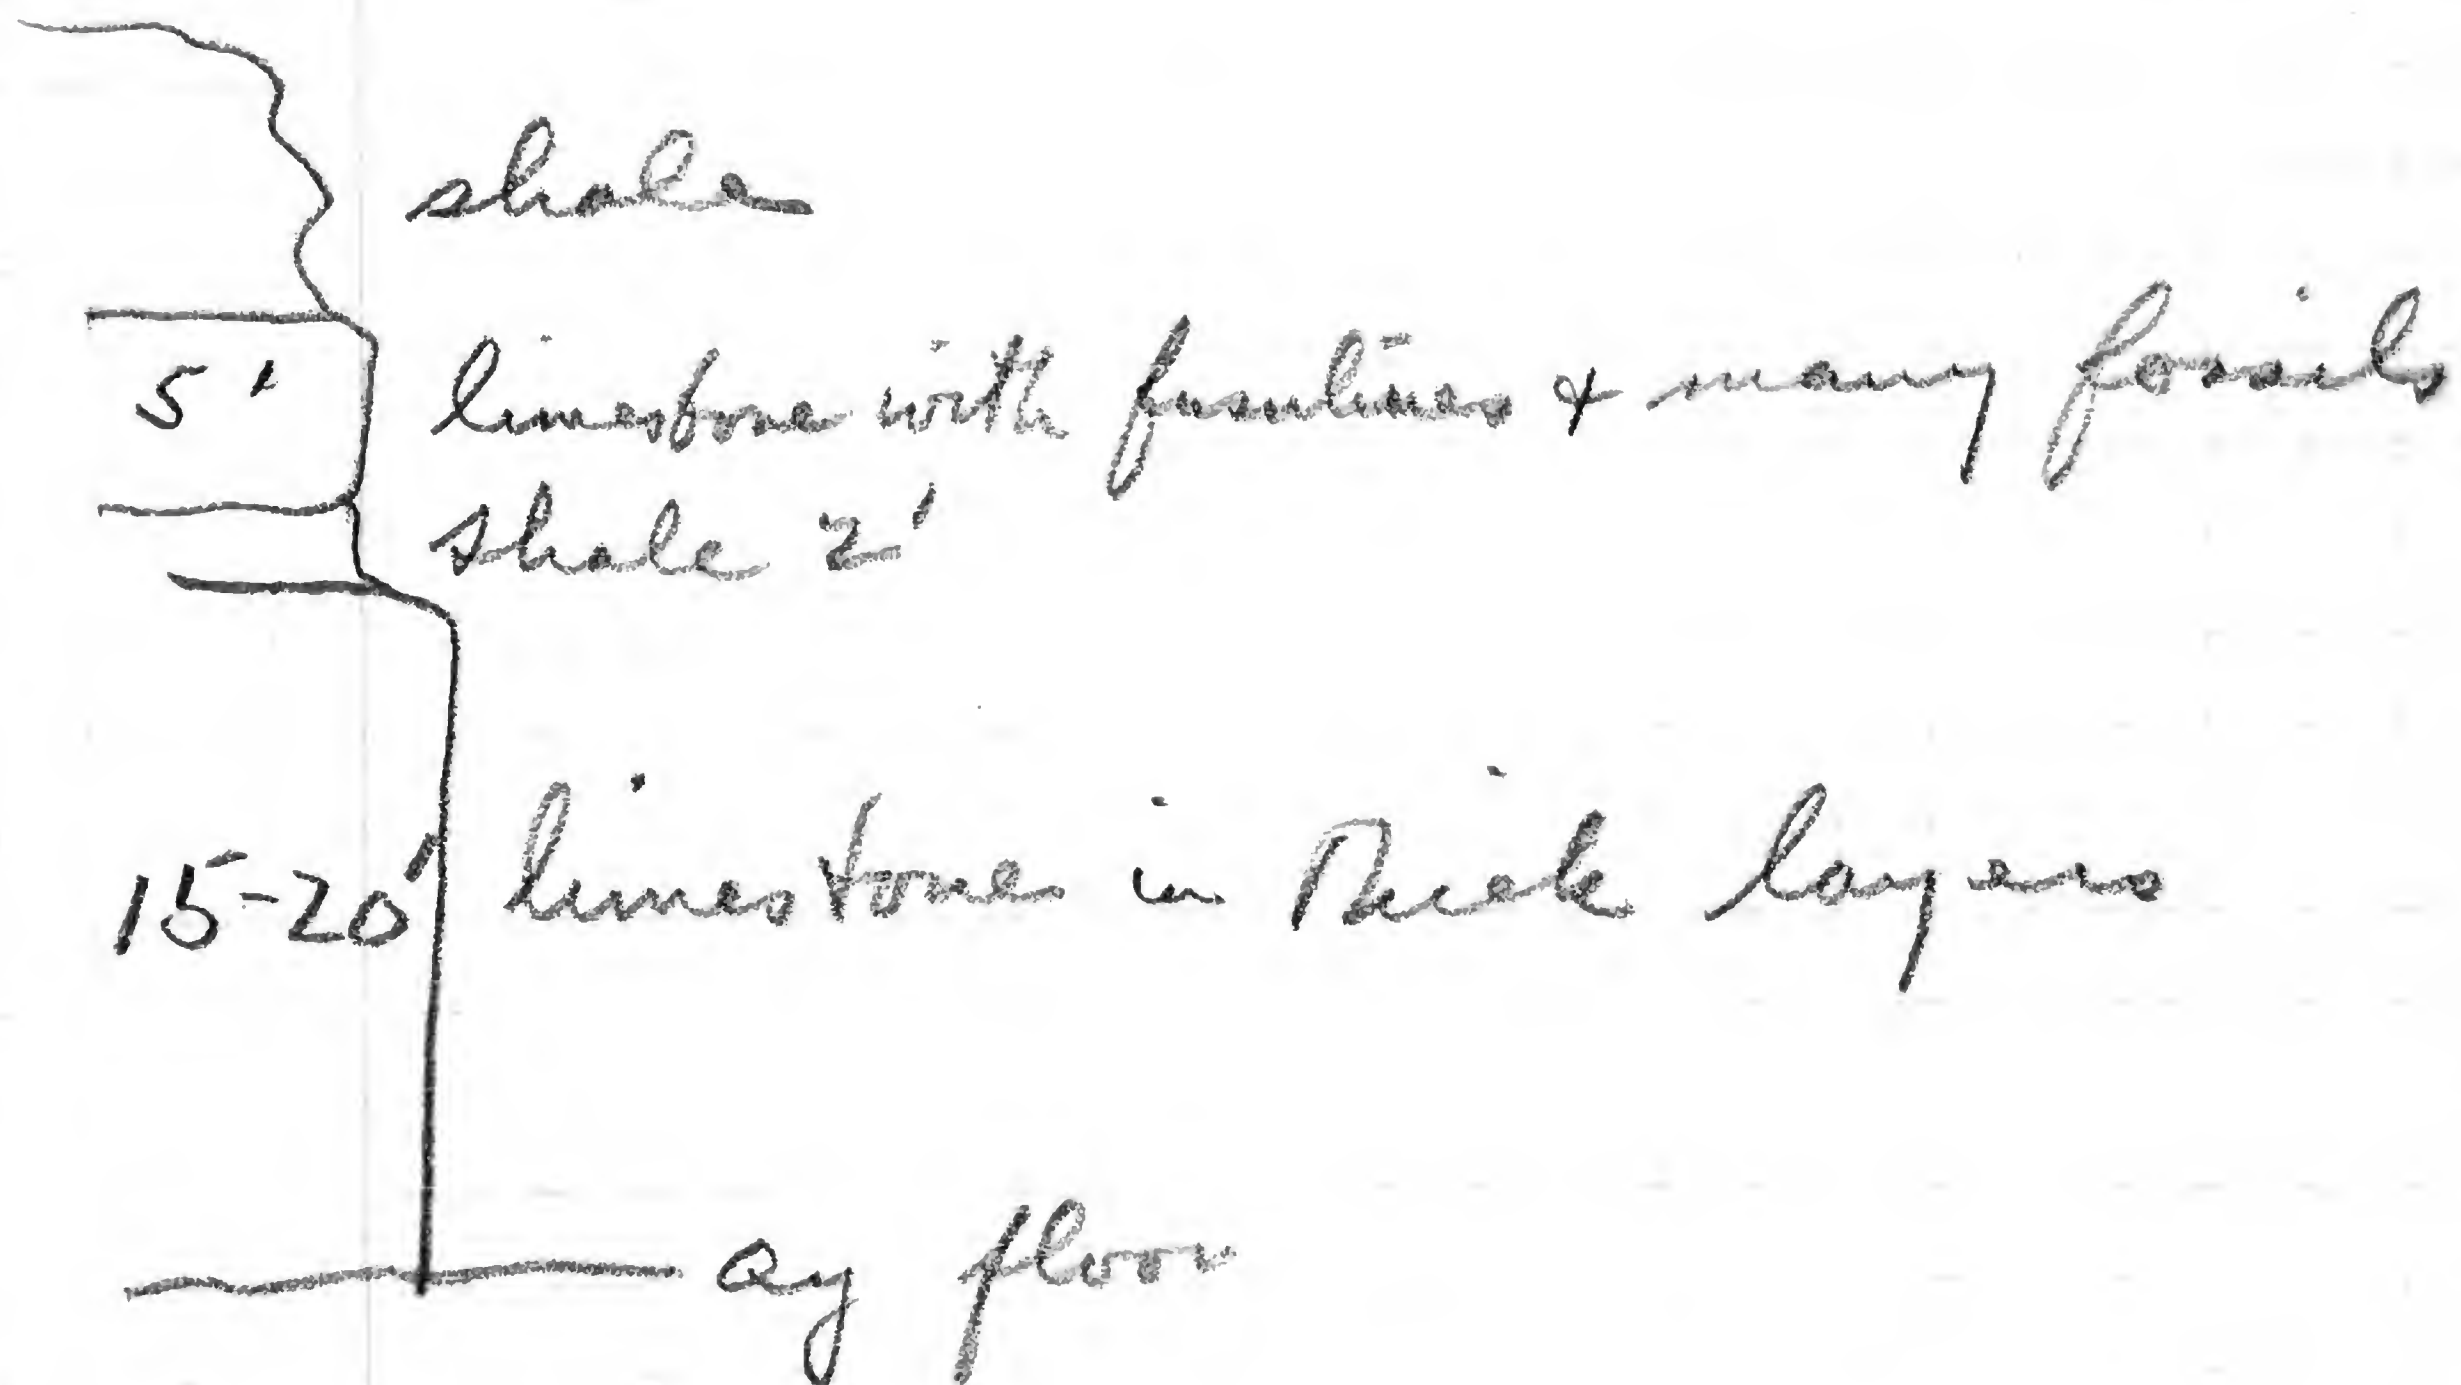 shale
5' limestone with fusulines & many fossils
shale 2'
15-20' limestone in thick layers
Qy floor